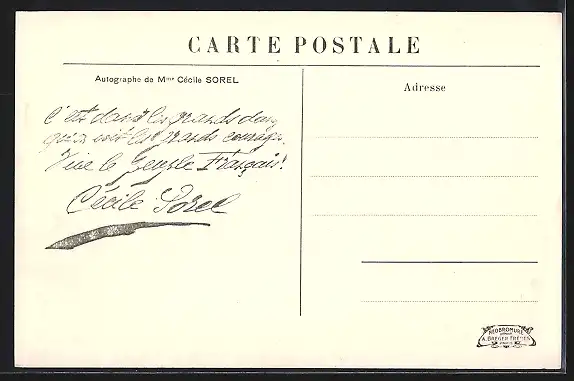 CARTE POSTALE
Autographe de Mme Cécile SOREL
Adresse
C'est dans les grands deuils
qu'on voit les grands courages.
Vive le Peuple Français!
Cécile Sorel
NÉOBROMURE
A. BREGER FRÈRES
PARIS